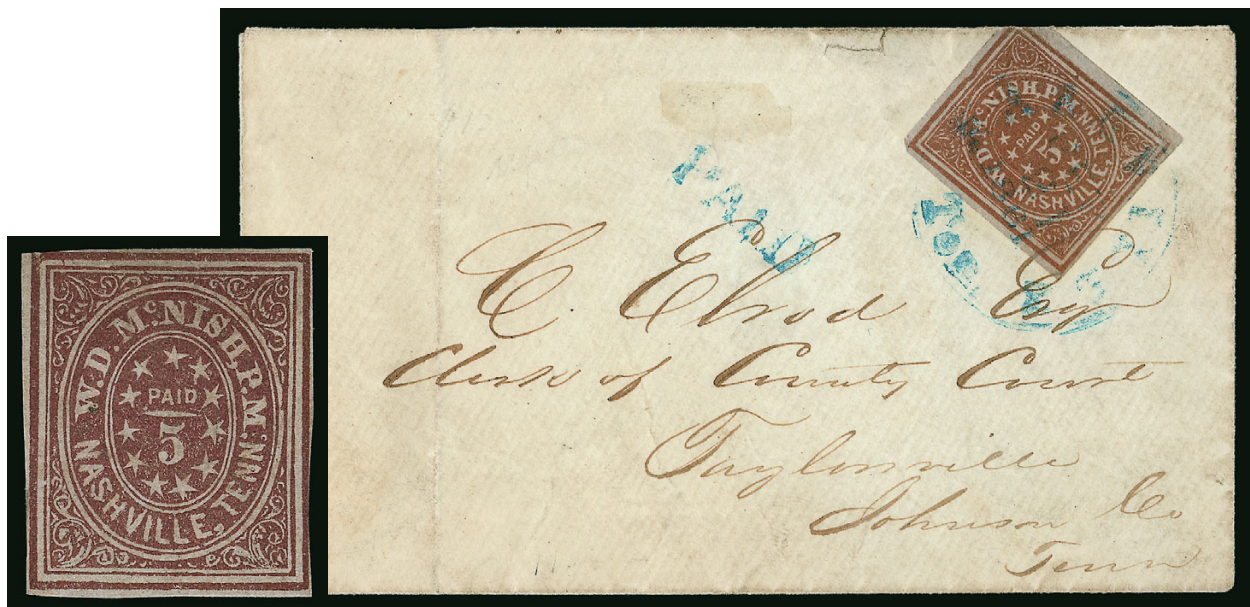 W.D. McNISH, P.M.
NASHVILLE, TENN.
PAID
5
W.D. McNISH, P.M.
NASHVILLE, TENN.
PAID
5
PAID
C. Elrod Esqr
Clerk of County Court
Taylorsville
Johnson Co
Tenn